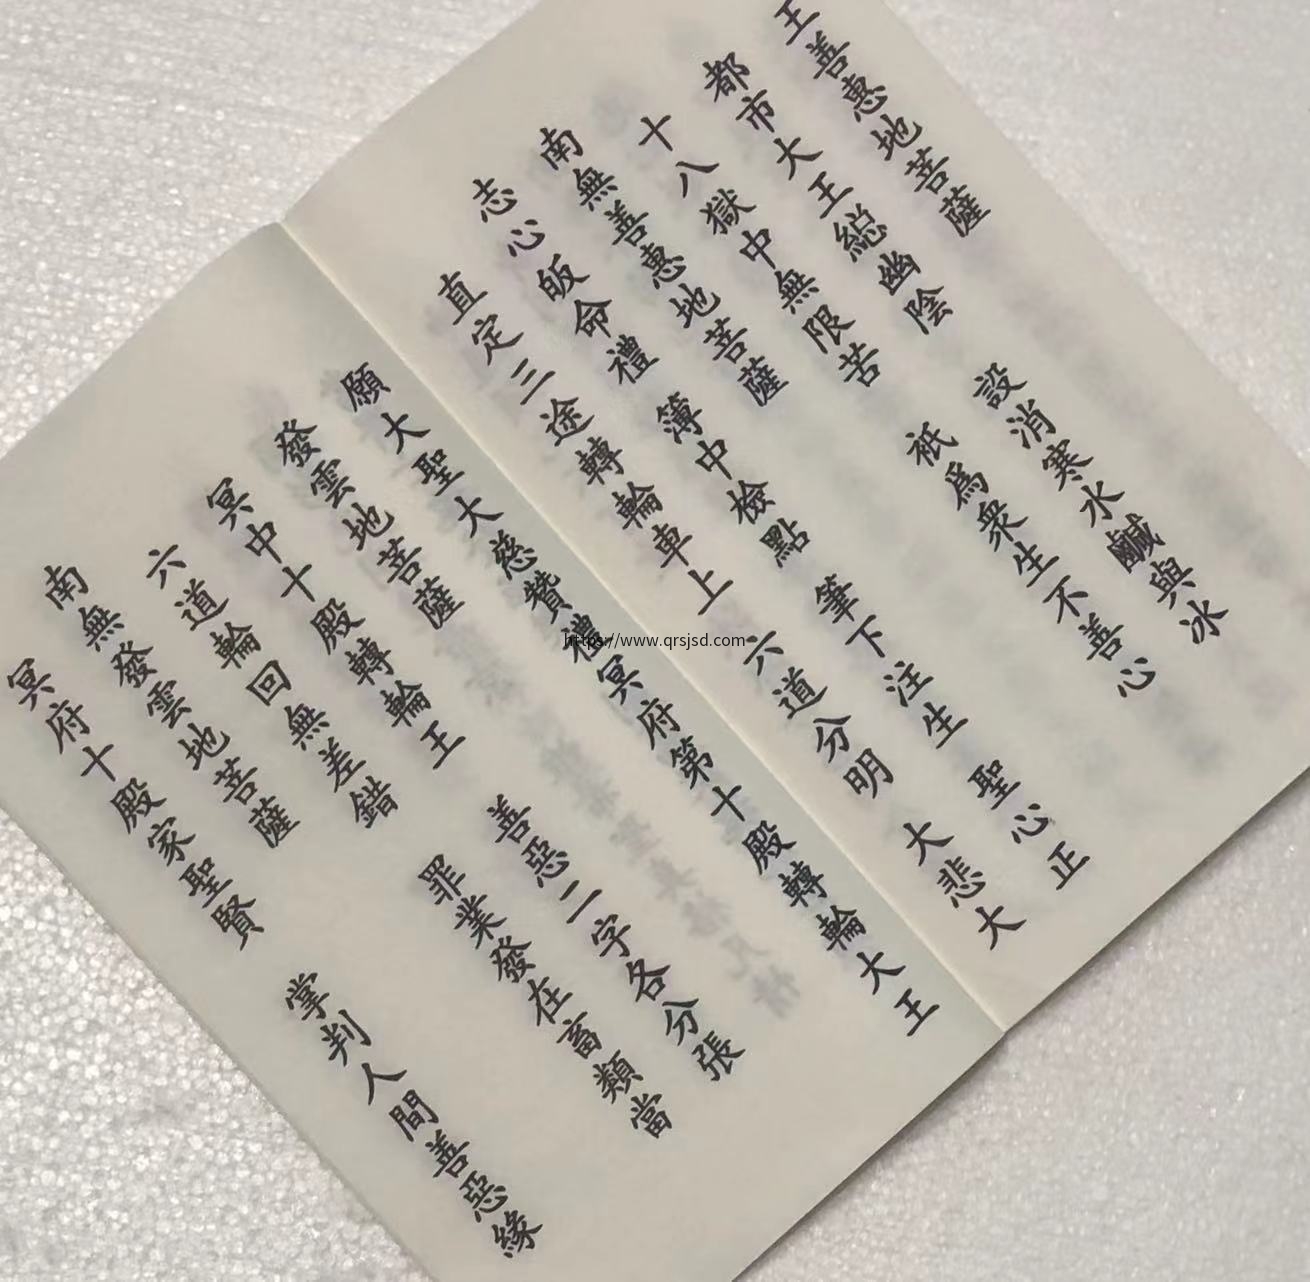 王善惠地菩薩
都市大王總幽陰　設消寒水鹹與冰
十八獄中無限苦　祇爲衆生不善心
南無善惠地菩薩
志心皈命禮　簿中檢點　筆下注生　聖心正
直定三途轉輪車上　六道分明　大悲大
願大聖大慈贊禮冥府第十殿轉輪大王
發雲地菩薩
冥中十殿轉輪王　善惡二字各分張
六道輪回無差錯　罪業發在畜類當
南無發雲地菩薩
冥府十殿家聖賢　掌判人間善惡緣
https://www.qrsjsd.com